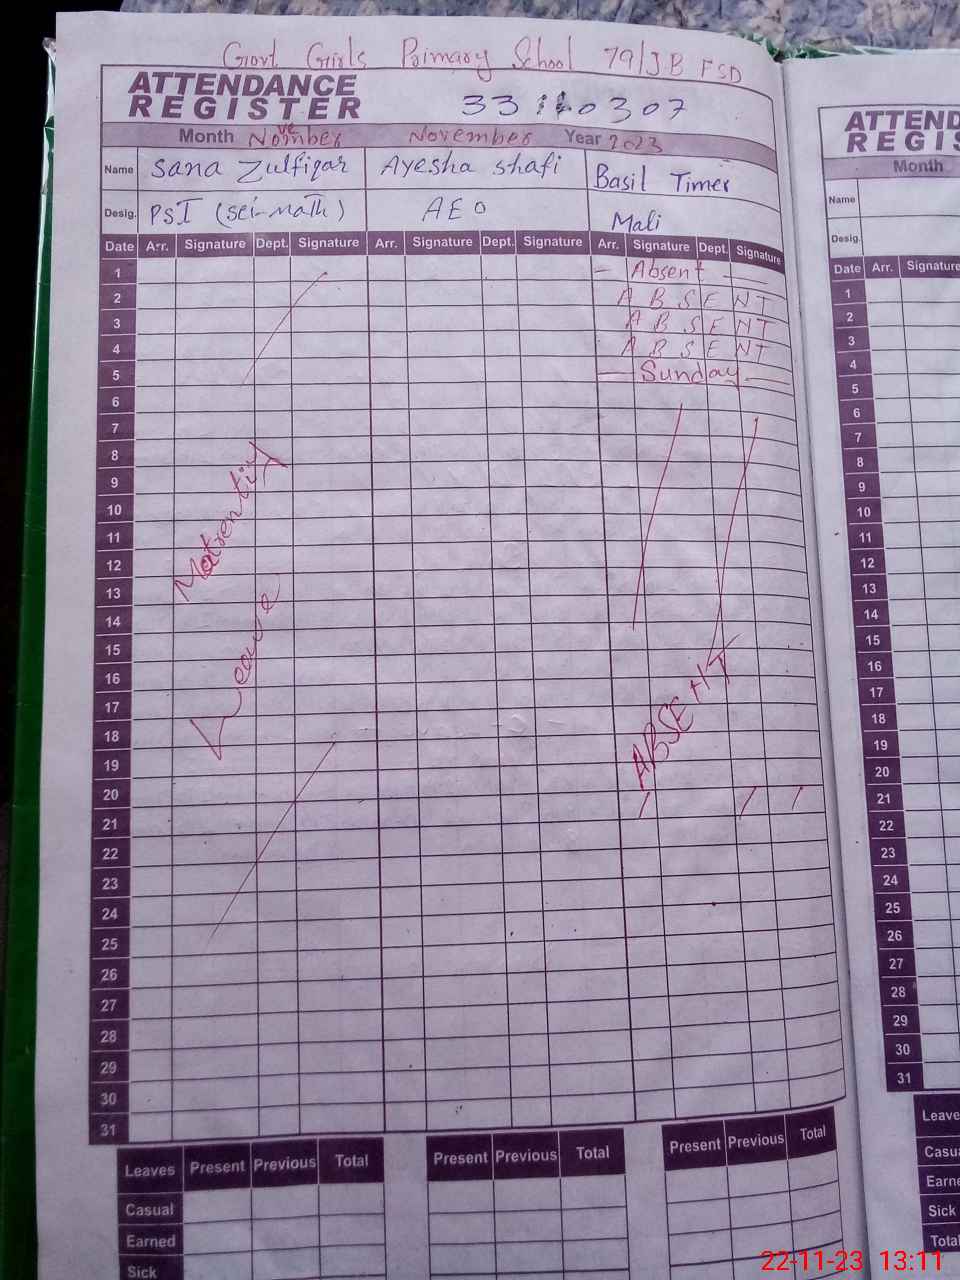 Govt Girls Primary School 79/J.B FSD
ATTENDANCE
REGISTER
33 0307
Month November November Year 2023
Name Sana Zulfiqar Ayesha Shafi Basil Timer
Desig. PSI (Sci-math) AEO Mali
Date Arr. Signature Dept. Signature Arr. Signature Dept. Signature Arr. Signature Dept. Signature
1 Absent
2 ABSENT
3 ABSENT
4 ABSENT
5 Sunday
6
7
8
9
10
11
12
13
14
15
16
17
18
19
20
21
22
23
24
25
26
27
28
29
30
31
Matrentiy
Leave
ABSENT
Leaves Present Previous Total Present Previous Total Present Previous Total
Casual
Earned
Sick
ATTEND
REGIS
Month
Name
Desig.
Date Arr. Signature
1
2
3
4
5
6
7
8
9
10
11
12
13
14
15
16
17
18
19
20
21
22
23
24
25
26
27
28
29
30
31
Leave
Casu
Earne
Sick
Total
22-11-23 13:11